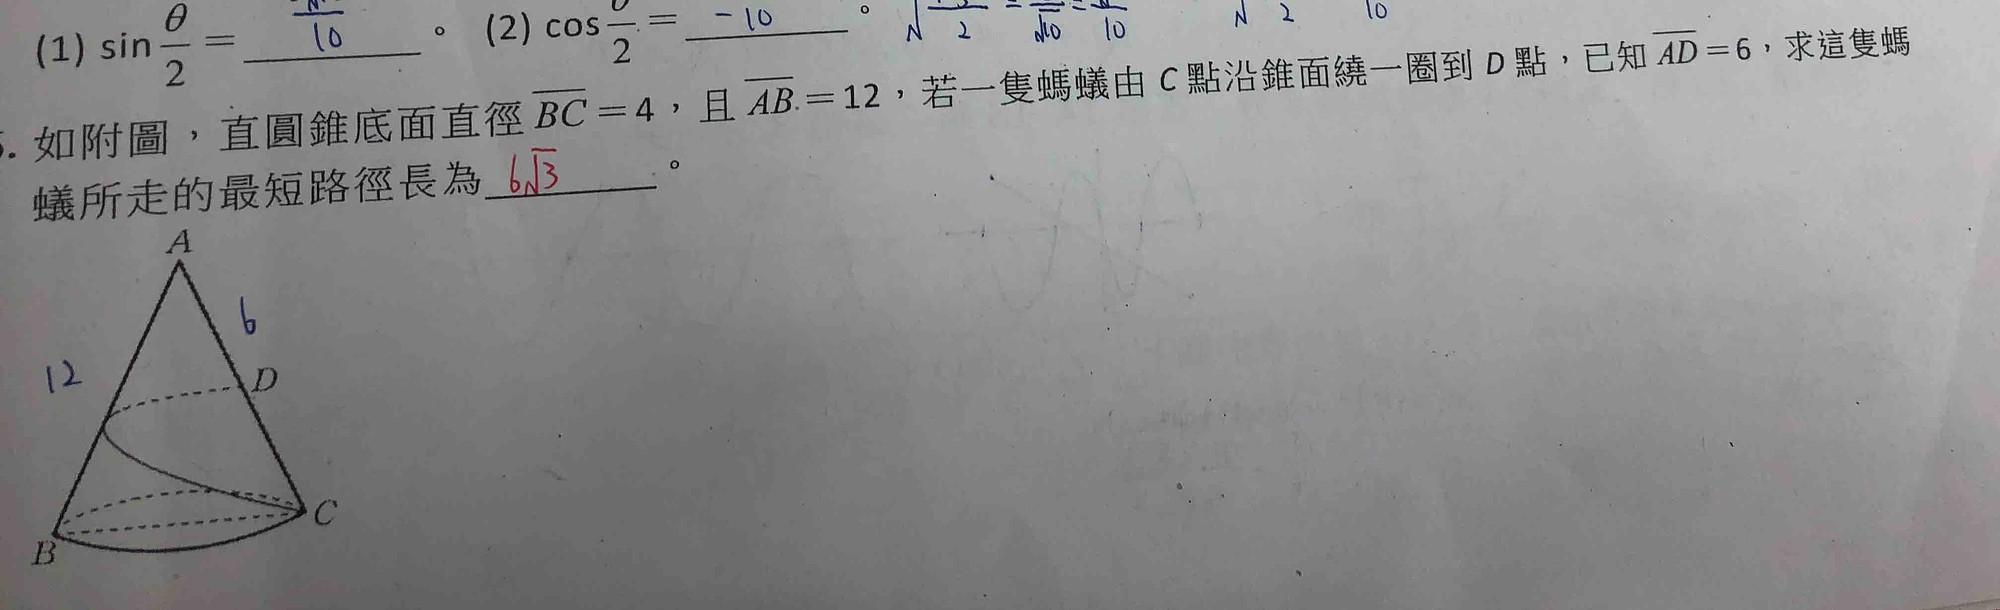 (1) sin θ/2 = √10/10 。 (2) cos θ/2 = -10 。
. 如附圖，直圓錐底面直徑 BC = 4，且 AB = 12，若一隻螞蟻由 C 點沿錐面繞一圈到 D 點，已知 AD = 6，求這隻螞
蟻所走的最短路徑長為 6√3 。
A
6
12
D
C
B